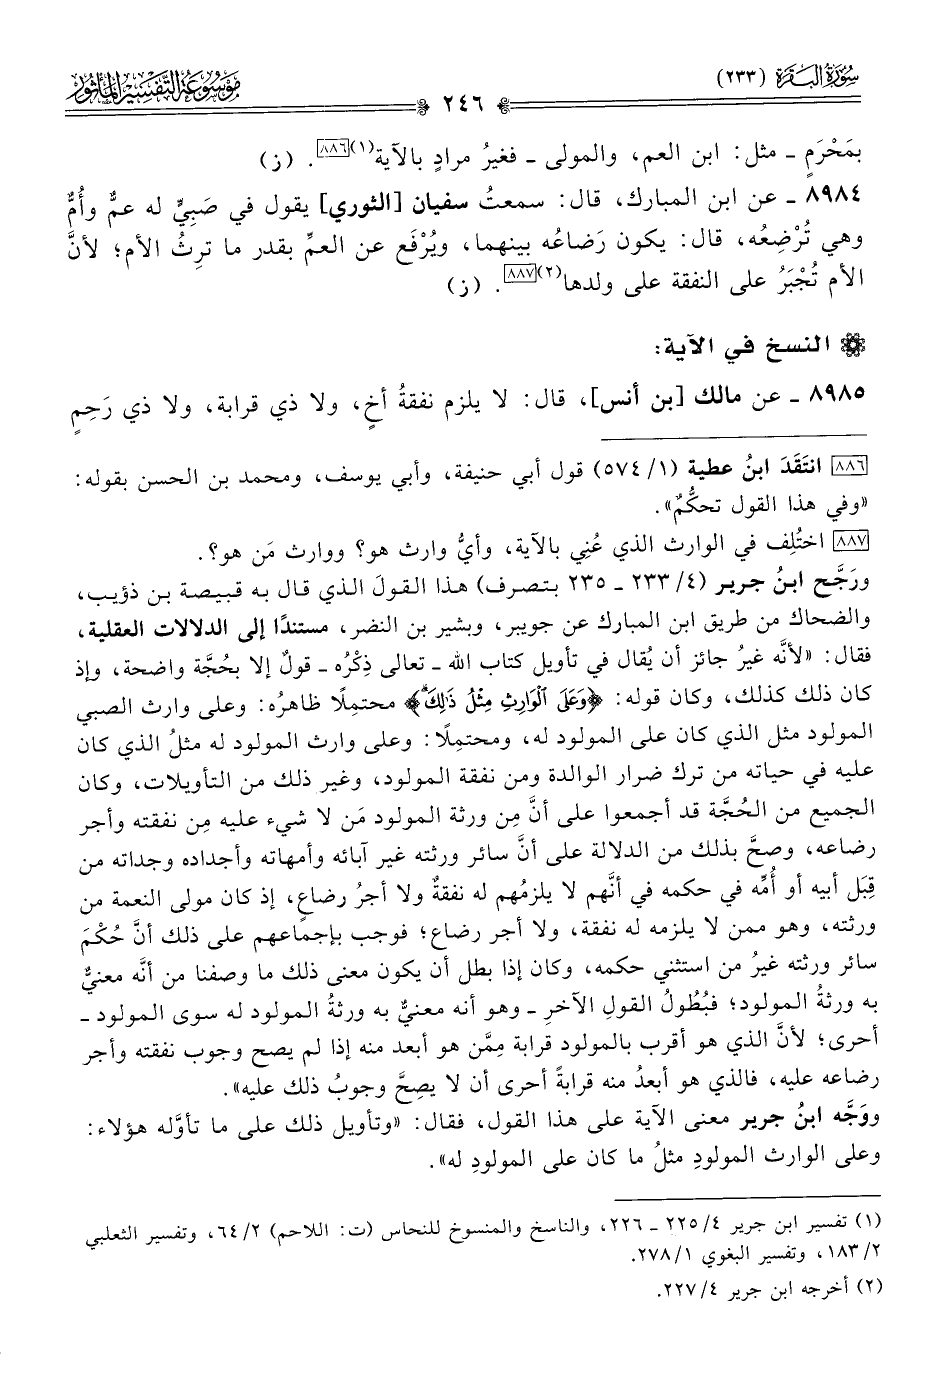 سُورَةُ البَقَرَة (٢٣٣)
٢٤٦
مَوْسُوعَة التَّفْسِير المَأْثُور
بمَحْرَمٍ ـ مثل: ابن العم، والمولى ـ فغيرُ مرادٍ بالآية(١)[٨٨٦]. (ز)
٨٩٨٤ ـ عن ابن المبارك، قال: سمعتُ سفيان [الثوري] يقول في صَبِيٍّ له عمٌّ وأُمٌّ
وهي تُرْضِعُه، قال: يكون رَضاعُه بينهما، ويُرْفَع عن العمِّ بقدر ما ترِثُ الأم؛ لأنَّ
الأم تُجْبَرُ على النفقة على ولدها(٢)[٨٨٧]. (ز)
النسخ في الآية:
٨٩٨٥ ـ عن مالك [بن أنس]، قال: لا يلزم نفقةُ أخٍ، ولا ذي قرابة، ولا ذي رَحِمٍ
[٨٨٦] انتَقَدَ ابنُ عطية (١/ ٥٧٤) قول أبي حنيفة، وأبي يوسف، ومحمد بن الحسن بقوله:
«وفي هذا القول تحكُّمٌ».
[٨٨٧] اختُلِف في الوارث الذي عُنِي بالآية، وأيُّ وارث هو؟ ووارث مَن هو؟.
ورَجَّح ابنُ جرير (٤/ ٢٣٣ ـ ٢٣٥ بتصرف) هذا القولَ الذي قال به قبيصة بن ذؤيب،
والضحاك من طريق ابن المبارك عن جويبر، وبشير بن النضر، مستندًا إلى الدلالات العقلية،
فقال: «لأنَّه غيرُ جائز أن يُقال في تأويل كتاب الله ـ تعالى ذِكْرُه ـ قولٌ إلا بحُجَّة واضحة، وإذ
كان ذلك كذلك، وكان قوله: ﴿وَعَلَى ٱلْوَارِثِ مِثْلُ ذَٰلِكَ﴾ محتمِلًا ظاهرُه: وعلى وارث الصبي
المولود مثل الذي كان على المولود له، ومحتمِلًا: وعلى وارث المولود له مثلُ الذي كان
عليه في حياته من ترك ضرار الوالدة ومن نفقة المولود، وغير ذلك من التأويلات، وكان
الجميع من الحُجَّة قد أجمعوا على أنَّ مِن ورثة المولود مَن لا شيء عليه مِن نفقته وأجر
رضاعه، وصحَّ بذلك من الدلالة على أنَّ سائر ورثته غير آبائه وأمهاته وأجداده وجداته من
قِبَل أبيه أو أُمِّه في حكمه في أنَّهم لا يلزمُهم له نفقةٌ ولا أجرُ رضاعٍ، إذ كان مولى النعمة من
ورثته، وهو ممن لا يلزمه له نفقة، ولا أجر رضاع؛ فوجب بإجماعهم على ذلك أنَّ حُكْمَ
سائر ورثته غيرُ من استثني حكمه، وكان إذا بطل أن يكون معنى ذلك ما وصفنا من أنَّه معنيٌّ
به ورثةُ المولود؛ فبُطُولُ القول الآخرِ ـ وهو أنه معنيٌّ به ورثةُ المولود له سوى المولود ـ
أحرى؛ لأنَّ الذي هو أقرب بالمولود قرابة مِمَّن هو أبعد منه إذا لم يصح وجوب نفقته وأجر
رضاعه عليه، فالذي هو أبعدُ منه قرابةً أحرى أن لا يصِحَّ وجوبُ ذلك عليه».
ووَجَّه ابنُ جرير معنى الآية على هذا القول، فقال: «وتأويل ذلك على ما تأوَّله هؤلاء:
وعلى الوارث المولودِ مثلُ ما كان على المولودِ له».
(١) تفسير ابن جرير ٤/ ٢٢٥ ـ ٢٢٦، والناسخ والمنسوخ للنحاس (ت: اللاحم) ٢/ ٦٤، وتفسير الثعلبي
٢/ ١٨٣، وتفسير البغوي ١/ ٢٧٨.
(٢) أخرجه ابن جرير ٤/ ٢٢٧.